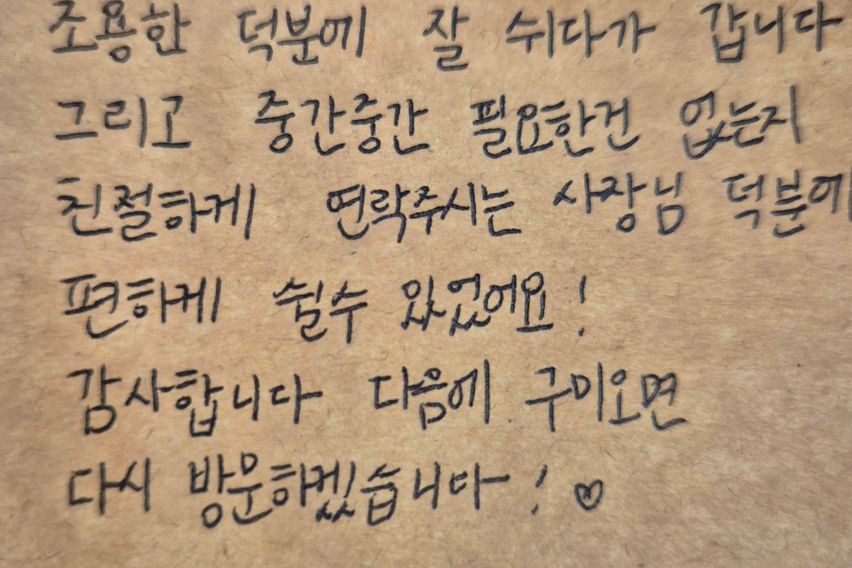 조용한 덕분에 잘 쉬다가 갑니다
그리고 중간중간 필요한건 없는지
친절하게 연락주시는 사장님 덕분에
편하게 쉴수 있었어요!
감사합니다 다음에 구미오면
다시 방문하겠습니다! ♡